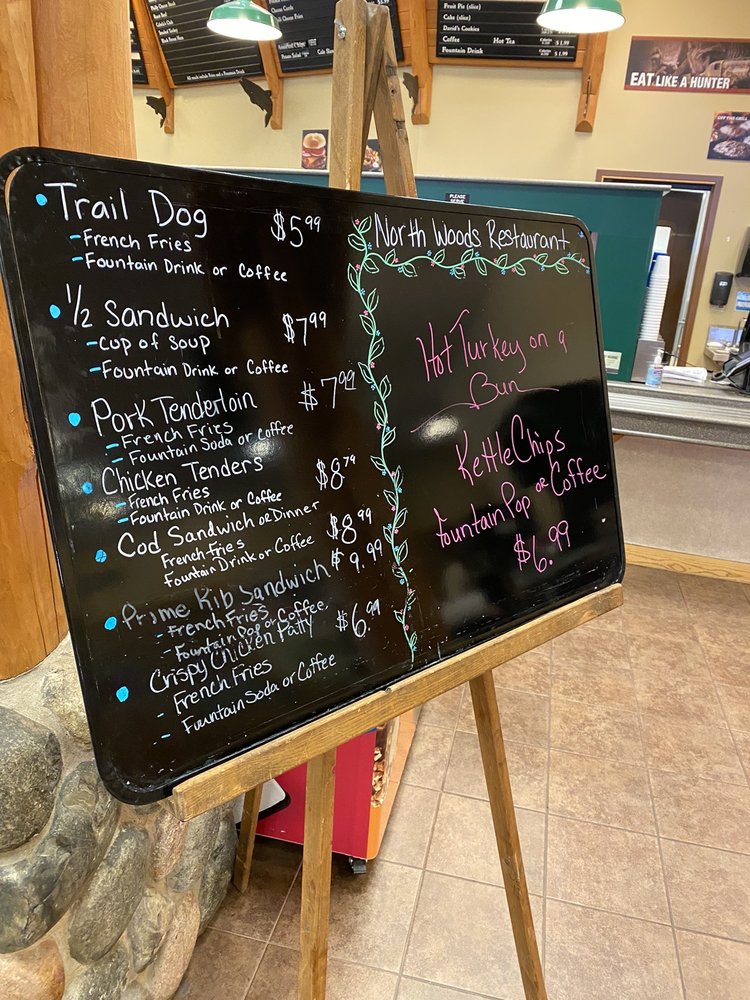 Trail Dog $5.99
- French Fries
- Fountain Drink or Coffee
1/2 Sandwich $7.99
- Cup of Soup
- Fountain Drink or Coffee
Pork Tenderloin $7.99
- French Fries
- Fountain Soda or Coffee
Chicken Tenders $8.79
- French Fries
- Fountain Drink or Coffee
Cod Sandwich or Dinner $8.99
French Fries
Fountain Drink or Coffee
Prime Rib Sandwich $9.99
- French Fries
- Fountain Pop or Coffee
Crispy Chicken Patty $6.99
- French Fries
- Fountain Soda or Coffee
North Woods Restaurant
Hot Turkey on a
Bun
Kettle Chips
Fountain Pop or Coffee
$6.99
EAT LIKE A HUNTER
Fruit Pie (slice)
Cake (slice)
David's Cookies
Coffee Hot Tea $1.99
Fountain Drink $1.99
PLEASE